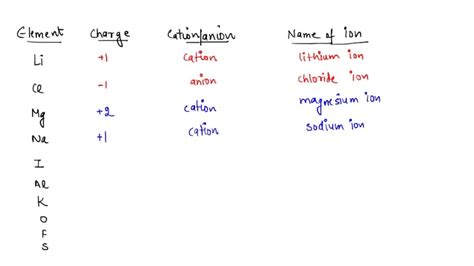 Element Charge Cation/anion Name of ion
Li +1 cation lithium ion
Cl -1 anion chloride ion
Mg +2 cation magnesium ion
Na +1 cation sodium ion
I
Al
K
O
F
S